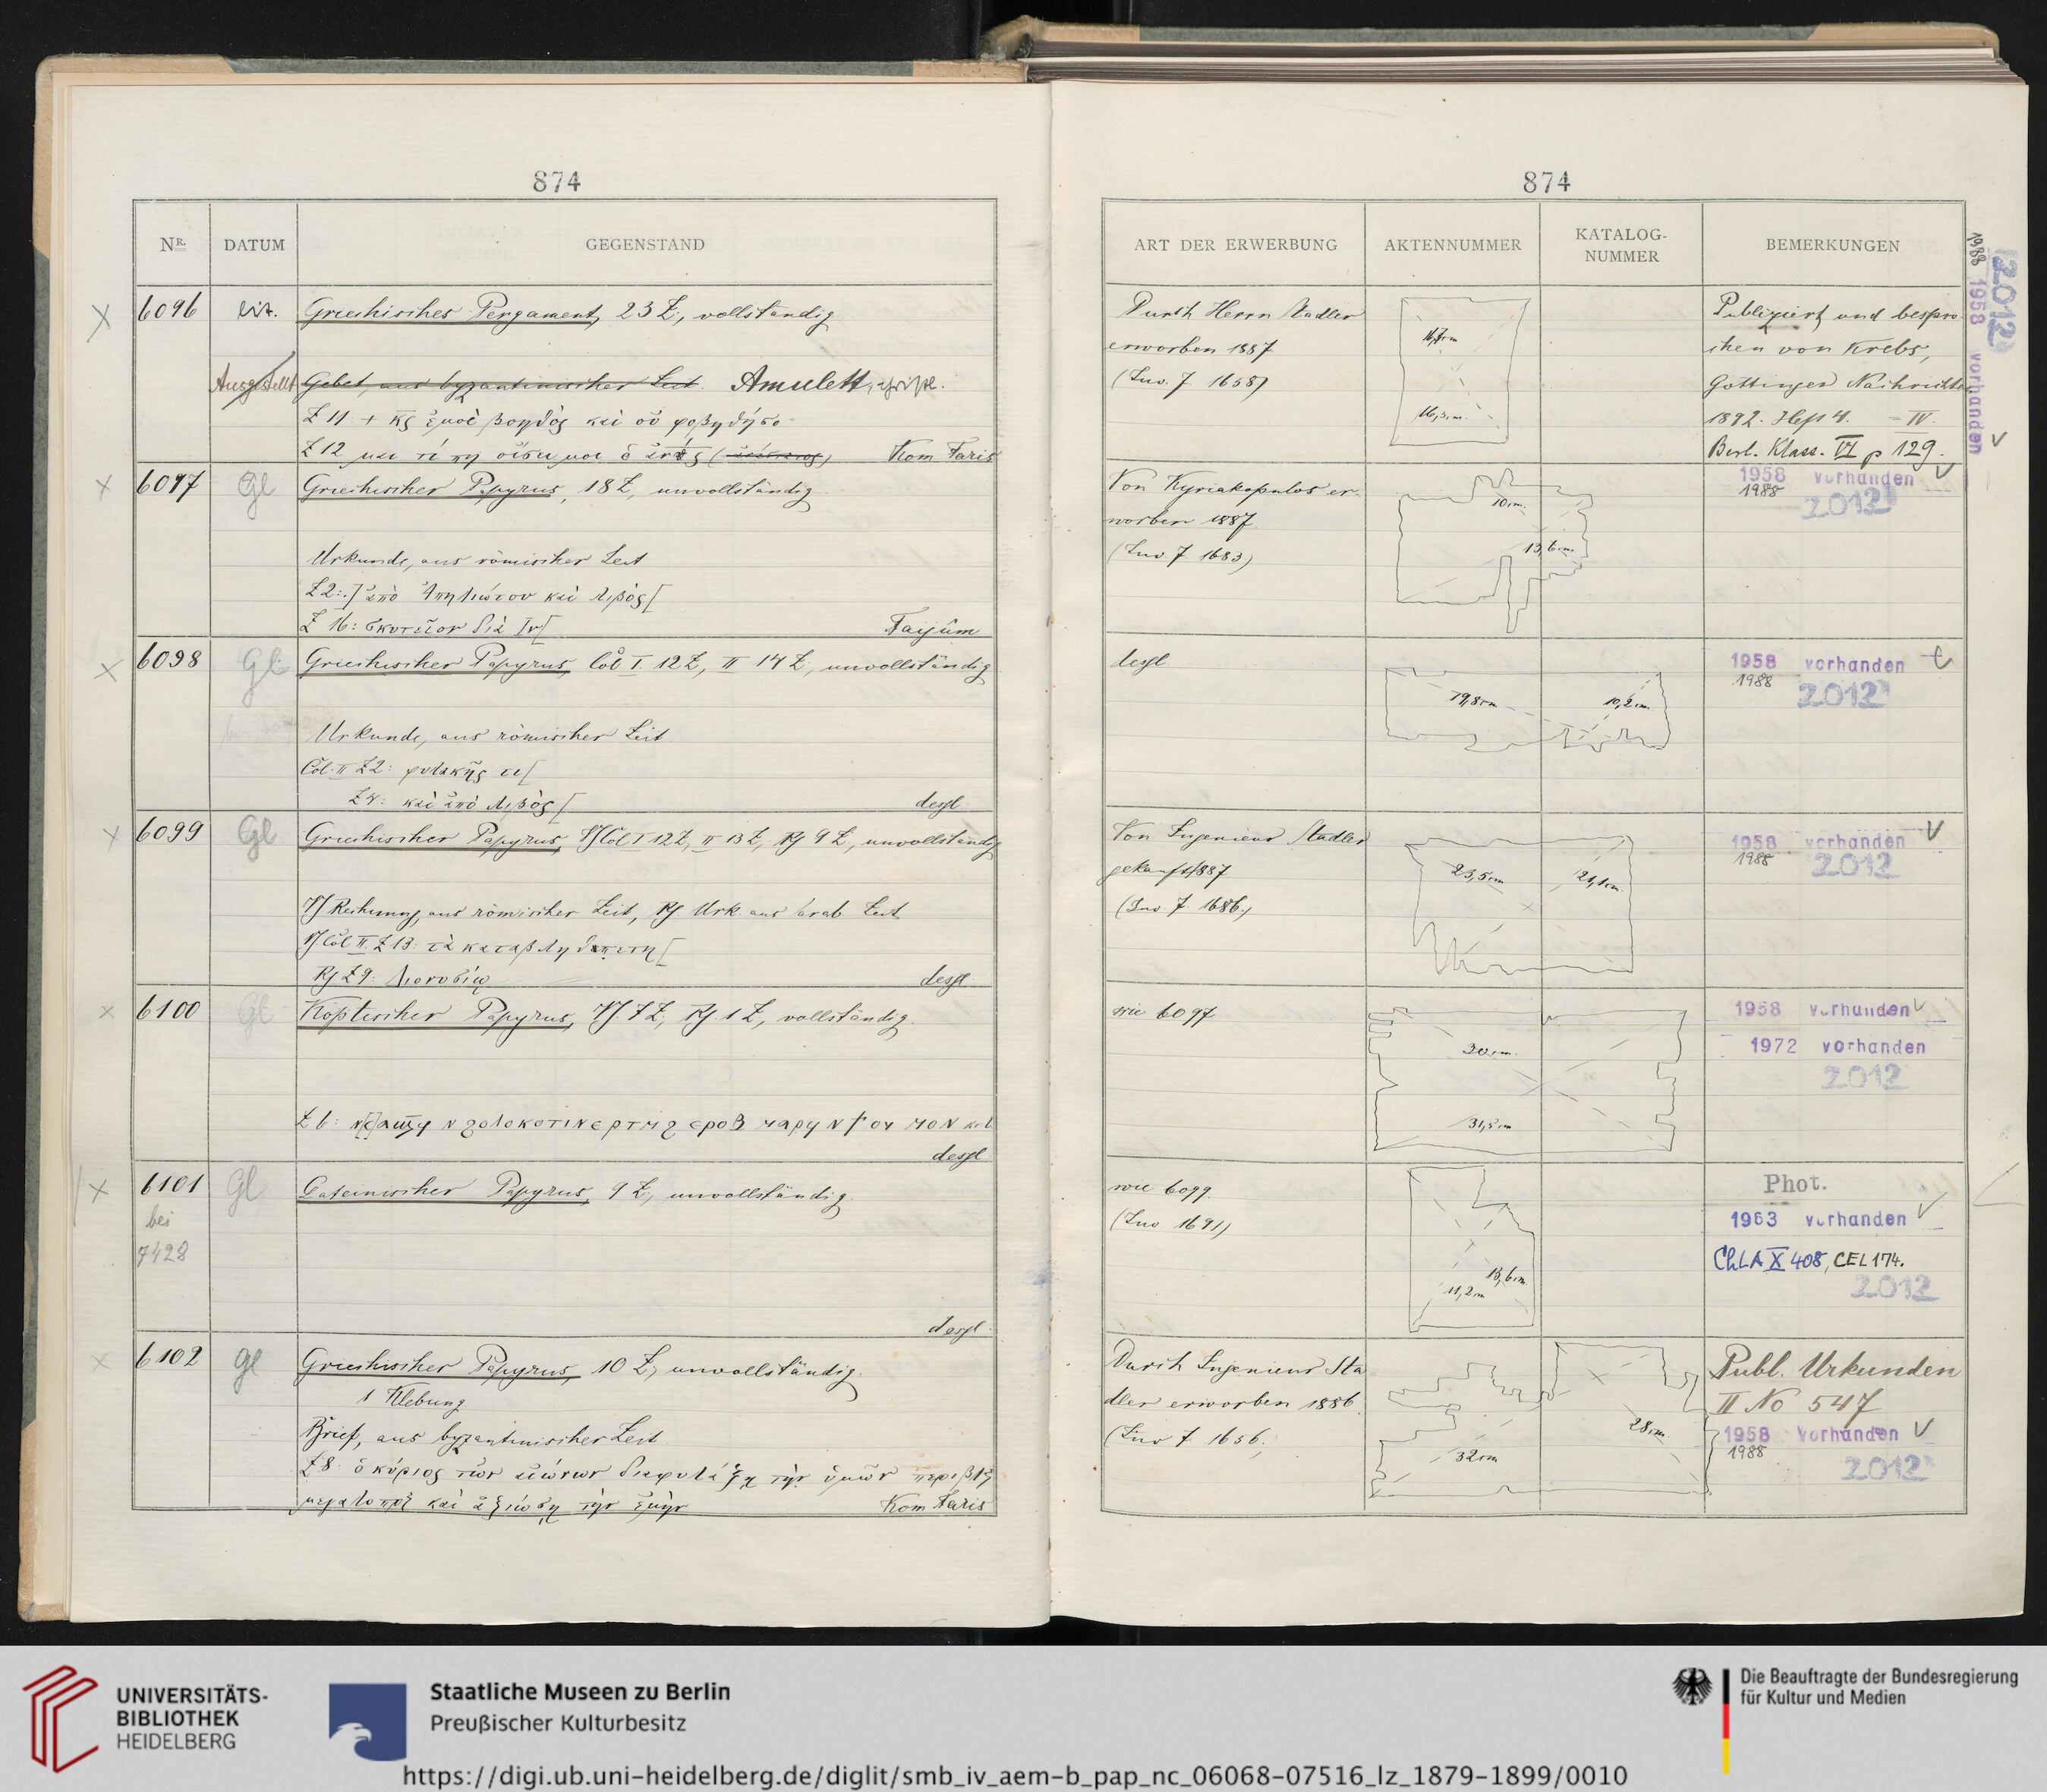 874
NR. DATUM GEGENSTAND
6096 lit. Griechisches Pergament, 23 Z., vollständig
Ausgestellt Gebet, aus byzantinischer Zeit. Amulett, christl.
Z 11 + κς ἐμοὶ βοηθὸς καὶ οὐ φοβηθήσο
Z 12 Kom Faris
6097 Gl Griechischer Papyrus, 18 Z., unvollständig
Urkunde, aus römischer Zeit
Z 2: ] ἀπὸ ἀπηλιώτου καὶ λιβὸς [
Z 16: διὰ Faijûm
6098 Gl Griechischer Papyrus, Col I 12 Z, II 14 Z, unvollständig
Urkunde, aus römischer Zeit
Col. II Z 2: φυλακῆς
Z 4: καὶ ἀπὸ λιβὸς [ desgl.
6099 Gl Griechischer Papyrus, V Col I 12 Z, II 13 Z, R 9 Z., unvollständig
V Rechnung, aus römischer Zeit, R Urk aus arab Zeit
V Col II. Z 13: τὰ
R Z 9: desgl.
6100 Gl Koptischer Papyrus, V. 7 Z, R. 1 Z, vollständig.
Z 6:
desgl.
6101 Gl Lateinischer Papyrus, 9 Z., unvollständig
bei
7428
desgl.
6102 gl Griechischer Papyrus, 10 Z, unvollständig.
1 Klebung
Brief, aus byzantinischer Zeit
Z 8: ὁ κύριος τῶν αἰώνων διαφυλάξῃ τὴν ὑμῶν περιβλ
καὶ τὴν ἐμὴν Kom Faris
874
ART DER ERWERBUNG AKTENNUMMER KATALOG-NUMMER BEMERKUNGEN
Durch Herrn Stadler
erworben 1887
(Inv. J. 1658)
16,3cm.
Publiziert und bespro
chen von Krebs,
Göttinger Nachrichten
1892. Heft 4. – IV.
Berl. Klass. VI p 129.
1988 1958 vorhanden
2012
Von Kyriakopulos er
worben 1887
(Inv J 1683)
10cm.
13,6cm.
1958 vorhanden
1988
2012
desgl
19,8cm
10,2cm.
1958 vorhanden
1988
2012
Von Ingenieur Stadler
gekauft 1887
(Inv J. 1686.)
23,5cm
21,1cm.
1958 vorhanden
1988
2012
wie 6097
30cm.
31,5cm
1958 vorhanden
1972 vorhanden
2012
wie 6099.
(Inv 1691)
13,6cm
11,2cm
Phot.
1963 vorhanden
ChLA X 408, CEL 174.
2012
Durch Ingenieur Sta
dler erworben 1886.
(Inv J 1656.)
32cm
28cm.
Publ. Urkunden
II No 547
1958 vorhanden
1988
2012
UNIVERSITÄTS-
BIBLIOTHEK
HEIDELBERG
Staatliche Museen zu Berlin
Preußischer Kulturbesitz
Die Beauftragte der Bundesregierung
für Kultur und Medien
https://digi.ub.uni-heidelberg.de/diglit/smb_iv_aem-b_pap_nc_06068-07516_lz_1879-1899/0010